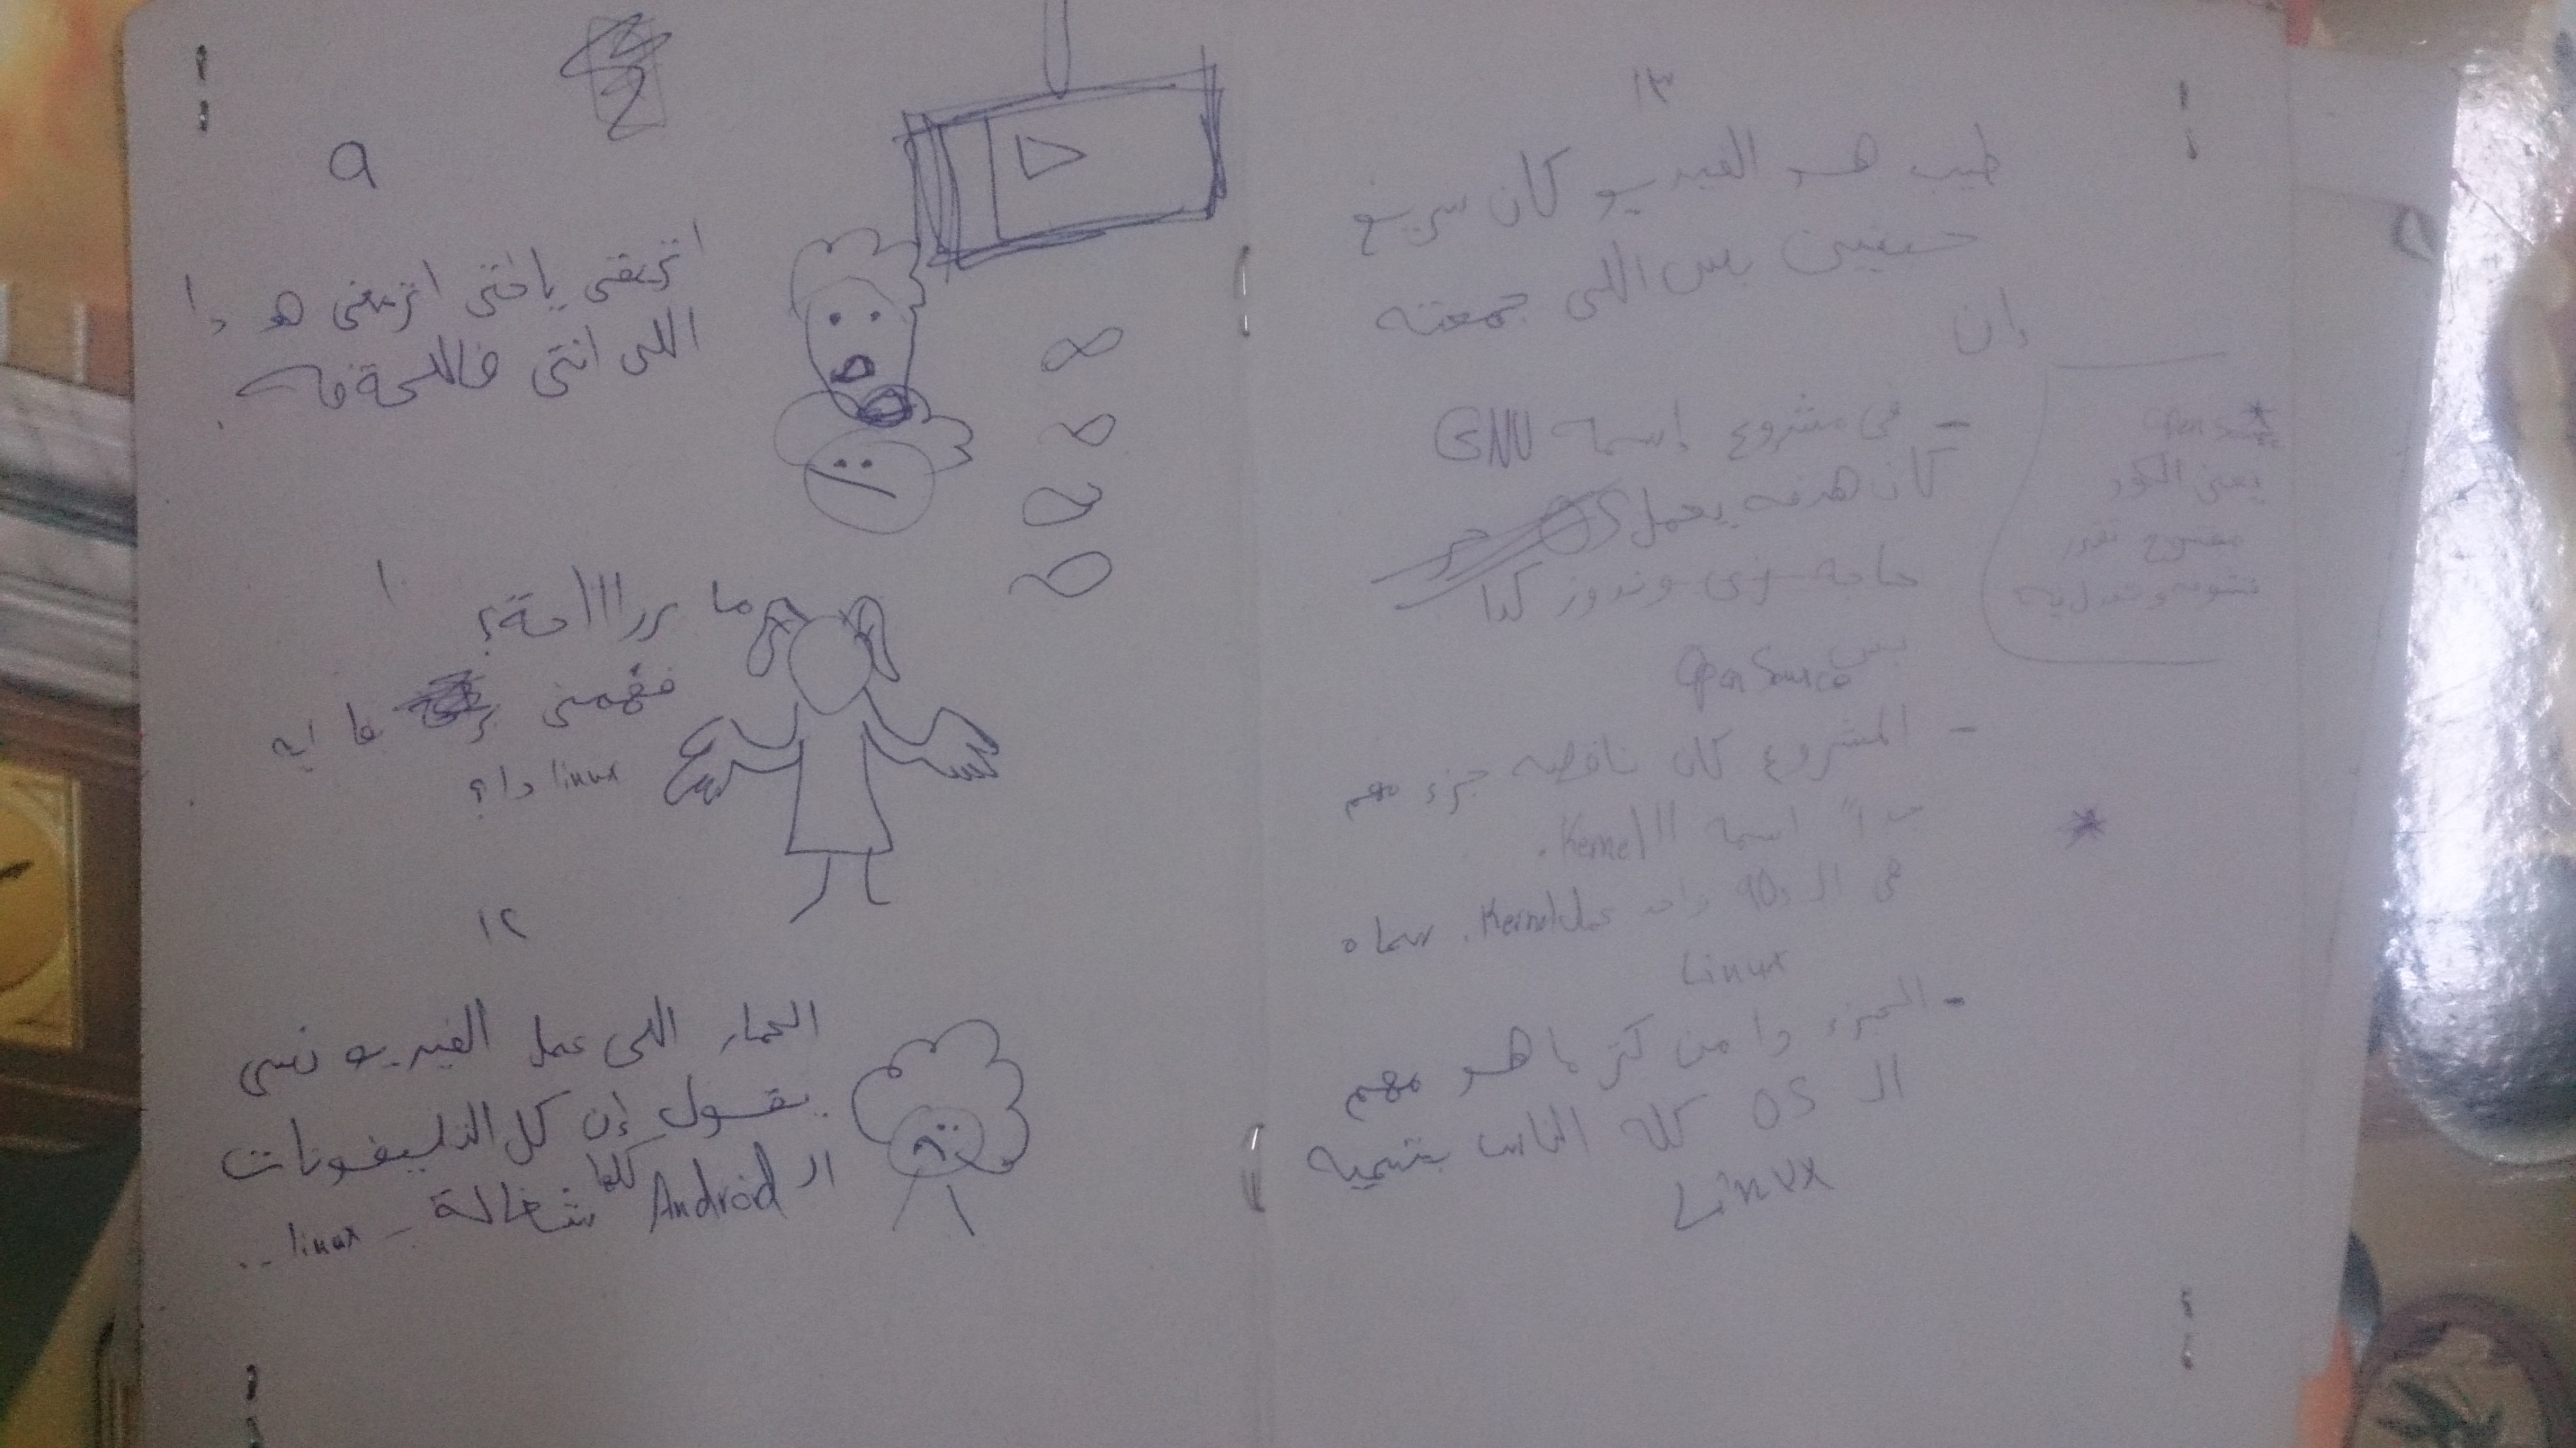 ٩
اتريقى ياختى اتريقى هو دا
اللى انتى فالحة فيه
١٠
ما برراااحة؟
فهمنى ما ايه
linux دا؟
١٢
الحمار اللى عمل الفيديو نسى
يقول إن كل التليفونات
الـ Android كلها شغالة
linux ..
١٣
طيب هو الفيديو كان سريع
حبتين بس اللى جمعته
إن
- فى مشروع إسمه GNU
كان هدفه يعمل OS
حاجه زى وندوز كدا
بس Open Source
- المشروع كان ناقصه جزء مهم
جداً اسمه الـ Kernel.
فى الـ 90s واحد عمل Kernel. سماه
Linux
- الجزء دا من كتر ما هو مهم
الـ OS كله الناس بتسميه
Linux
* Open Source
يعنى الكود
مفتوح تقدر
تشوفه وتعدل فيه
*